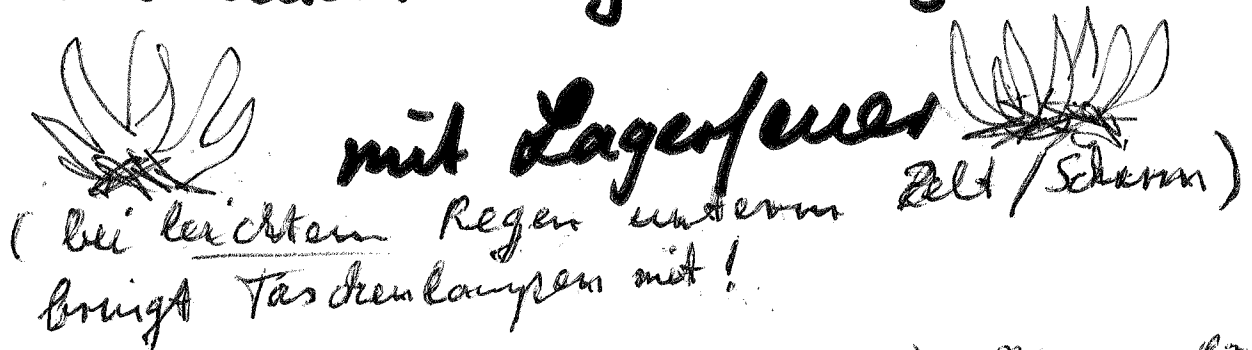 mit Lagerfeuer
(bei leichtem Regen unterm Zelt / Schirm)
bringt Taschenlampen mit!